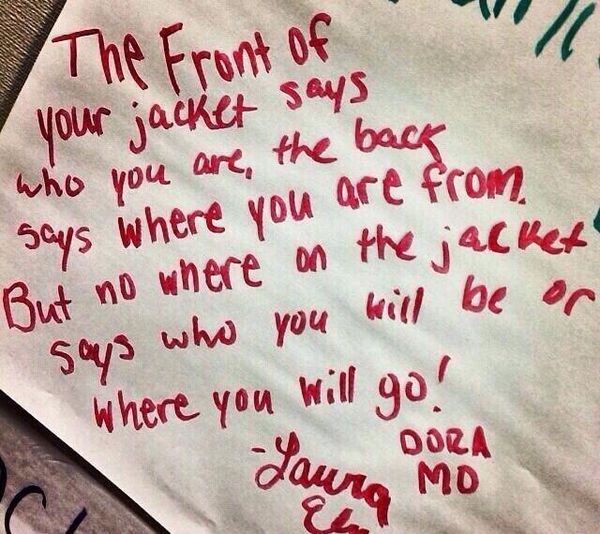 The Front of
your jacket says
who you are, the back
says where you are from.
But no where on the jacket
says who you will be or
where you will go!
-Laura DORA
MD